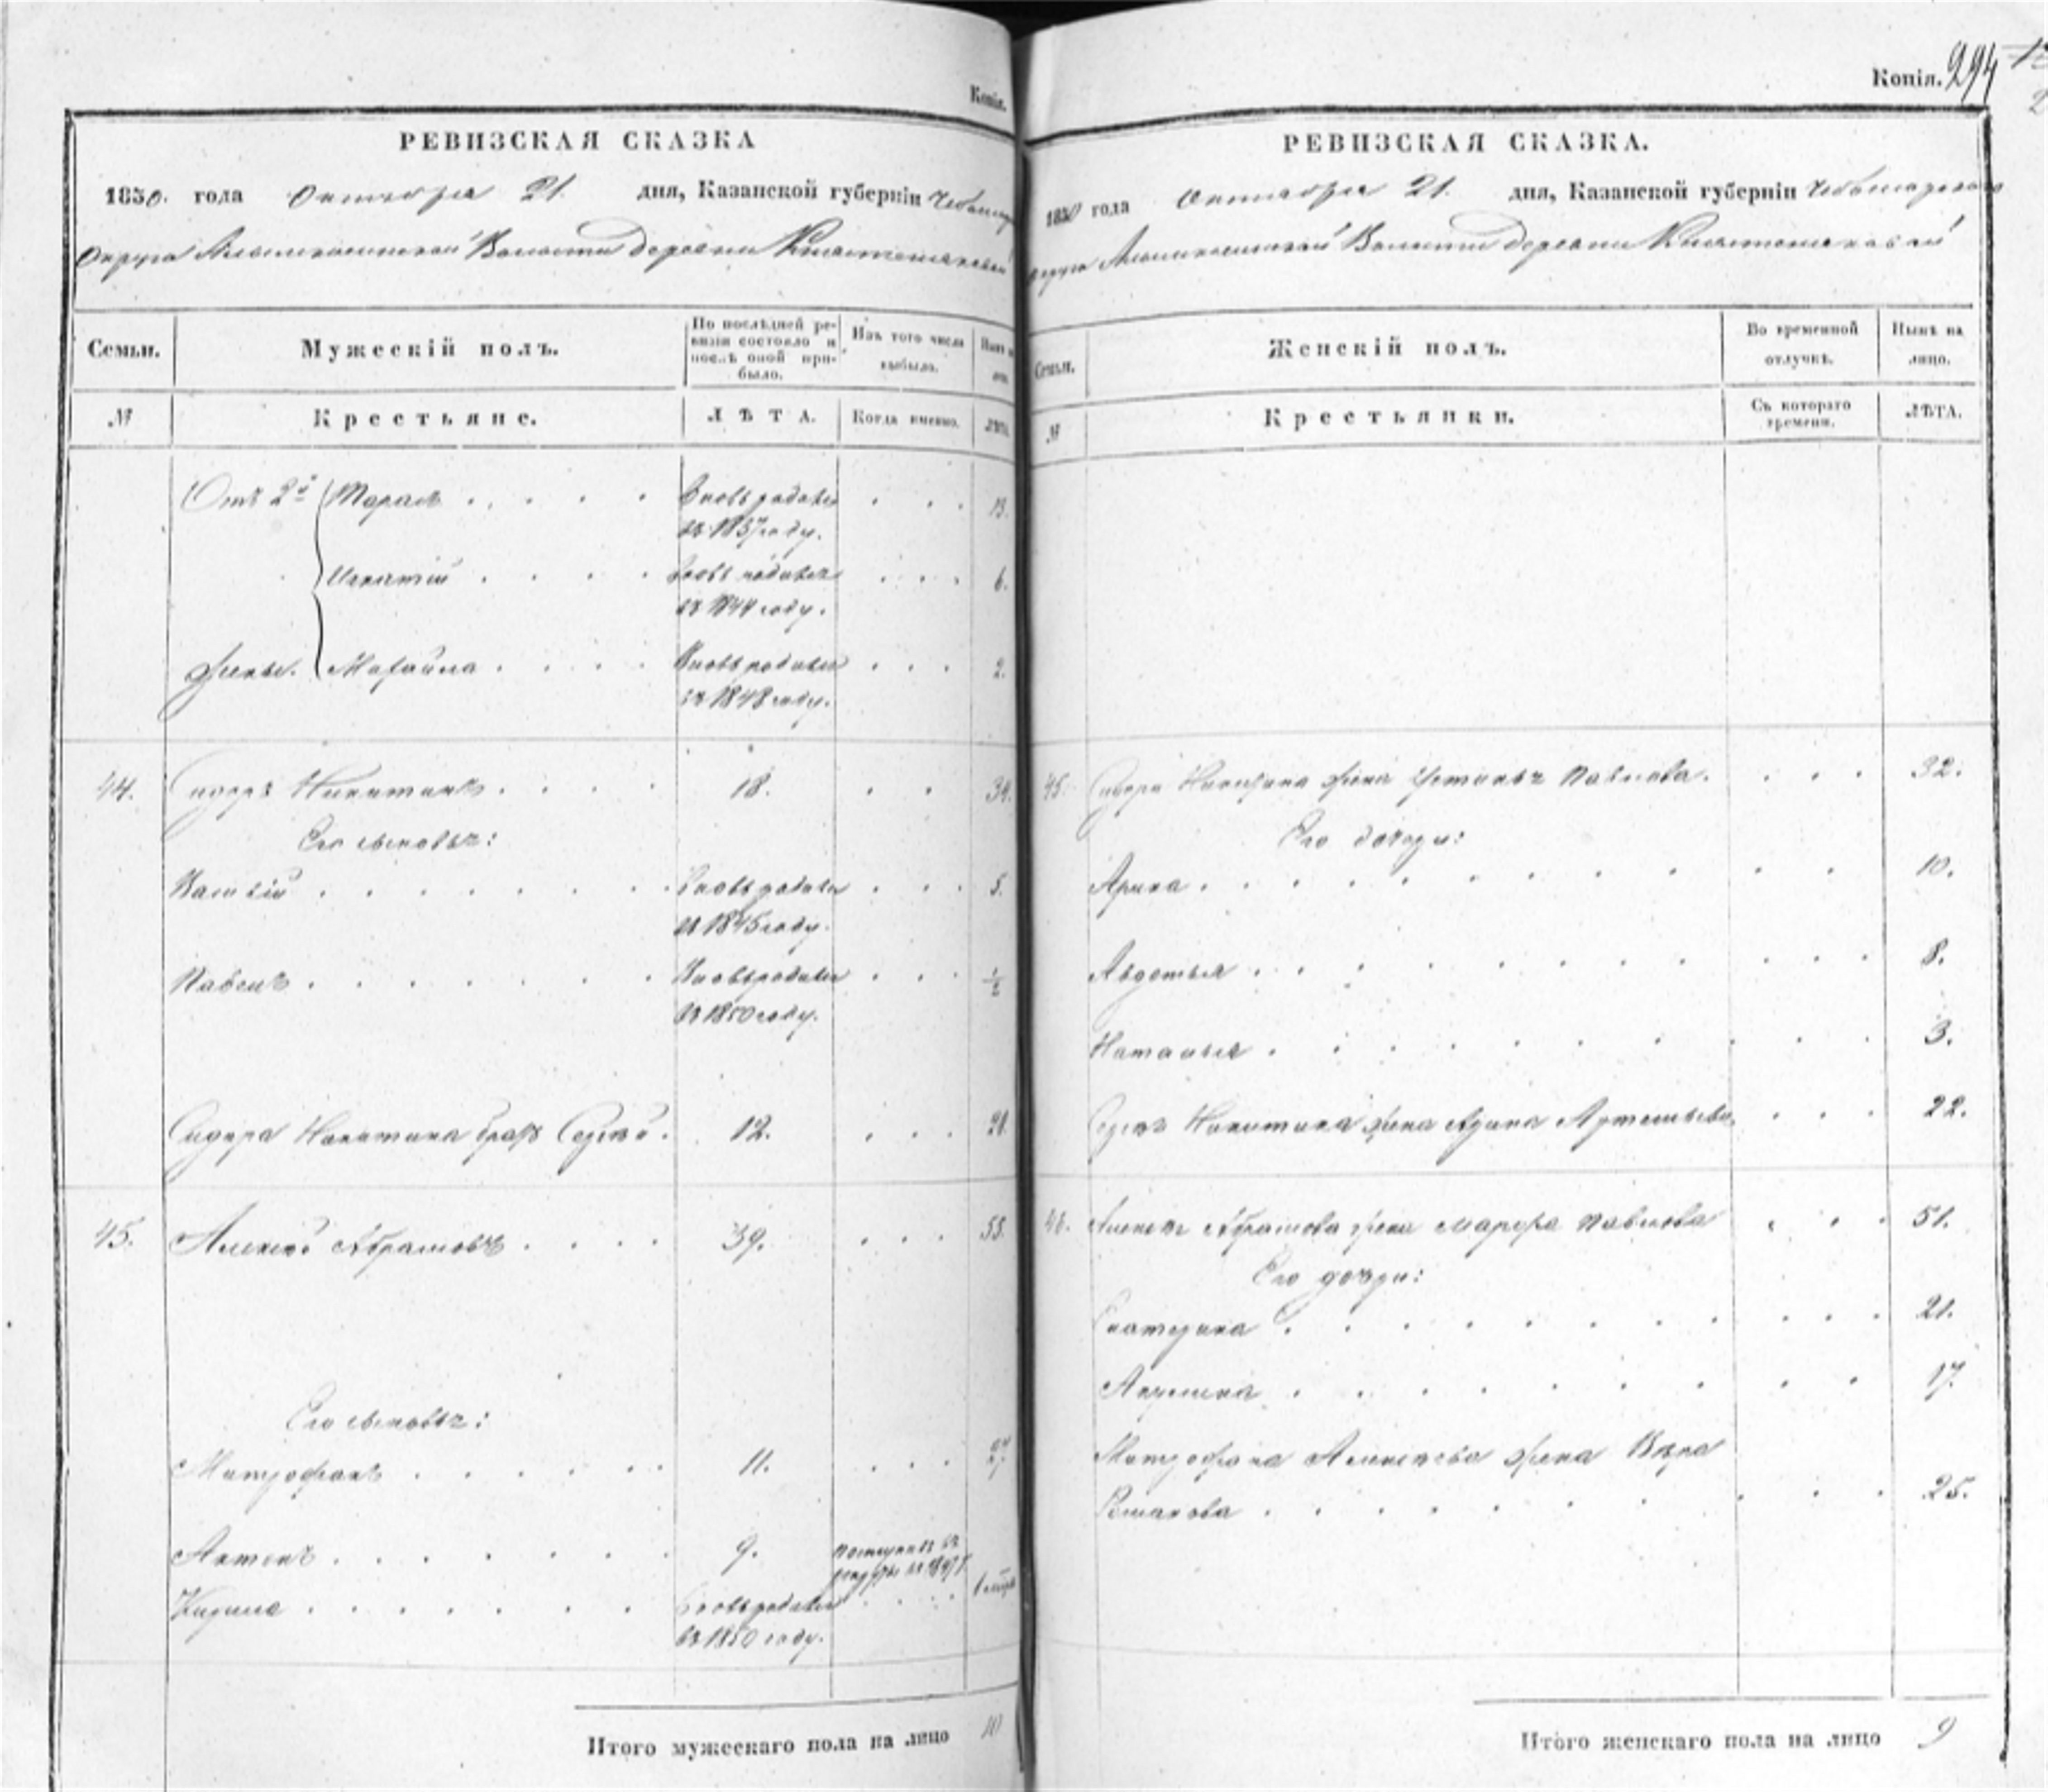 Копія.
РЕВИЗСКАЯ СКАЗКА
1850. года Октября 21. дня, Казанской губерніи
Округа Волости деревни
Семьи. Мужескій полъ. По послѣдней ревизіи состояло и послѣ оной прибыло. Изъ того числа выбыло.
№ Крестьяне. ЛѢТА. Когда именно. ЛѢТА.
Отъ 2й Тарасъ . . . . Вновь родился . . . 13.
въ 1837 году.
Игнатій . . . . Вновь родился . . . 6.
въ 1844 году.
жены. Михайла . . . . Вновь родился . . . 2.
въ 1848 году.
44. Сидоръ Никитинъ . . . . 18. . . 34.
Его сыновья:
Василій . . . . . . . Вновь родился . . . 5.
въ 1845 году.
Павелъ . . . . . . . Вновь родился . . . 1/2
въ 1850 году.
Сидора Никитина братъ Сергѣй. 12. . . . 28.
45. Алексѣй Абрамовъ . . . . 39. . . . 55.
Его сыновья:
Митрофанъ . . . . . . 11. . . . 27.
Антонъ . . . . . . . 9. поступилъ въ
рекруты въ
Кирила . . . . . . . Вновь родился . . . .
въ 1850 году.
Итого мужескаго пола на лицо 10
Копія. 294
РЕВИЗСКАЯ СКАЗКА.
1850 года Октября 21. дня, Казанской губерніи Чебоксарскаго
Округа Волости деревни
Семьи. Женскій полъ. Во временной отлучкѣ. Нынѣ на лицо.
№ Крестьянки. Съ котораго времени. ЛѢТА.
45. Сидора Никитина жена Устинья Павлова. . . . 32.
Его дочери:
Арина . . . . . . . . . . 10.
Авдотья . . . . . . . . . . 8.
Наталья . . . . . . . . . . 3.
Сергѣя Никитина жена Арина Артемьева . . . 22.
46. Алексѣя Абрамова жена Марфа Павлова . . . 51.
Его дочери:
Екатерина . . . . . . . . . . 21.
Акулина . . . . . . . . . . 17.
Митрофана Алексѣева жена Вѣра
. . . . . . . . . . 25.
Итого женскаго пола на лицо 9